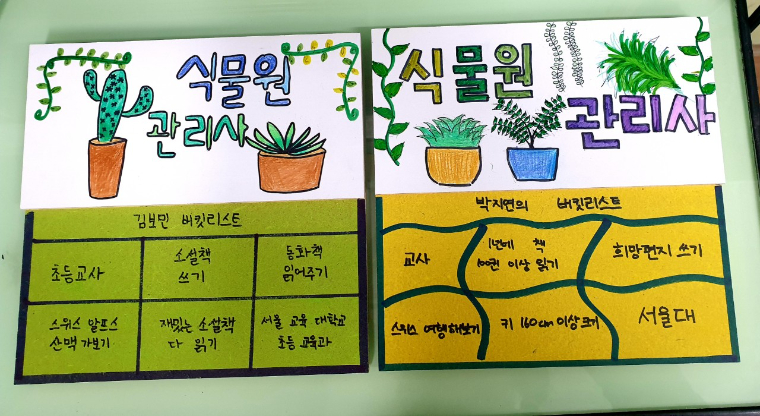 식물원
관리사
김보민 버킷리스트
초등교사
소설책
쓰기
동화책
읽어주기
스위스 알프스
산맥 가보기
재밌는 소설책
다 읽기
서울 교육 대학교
초등 교육과
식물원
관리사
박지연의 버킷리스트
교사
1년에 책
100권 이상 읽기
희망편지 쓰기
스위스 여행해보기
키 160cm 이상 크기
서울대